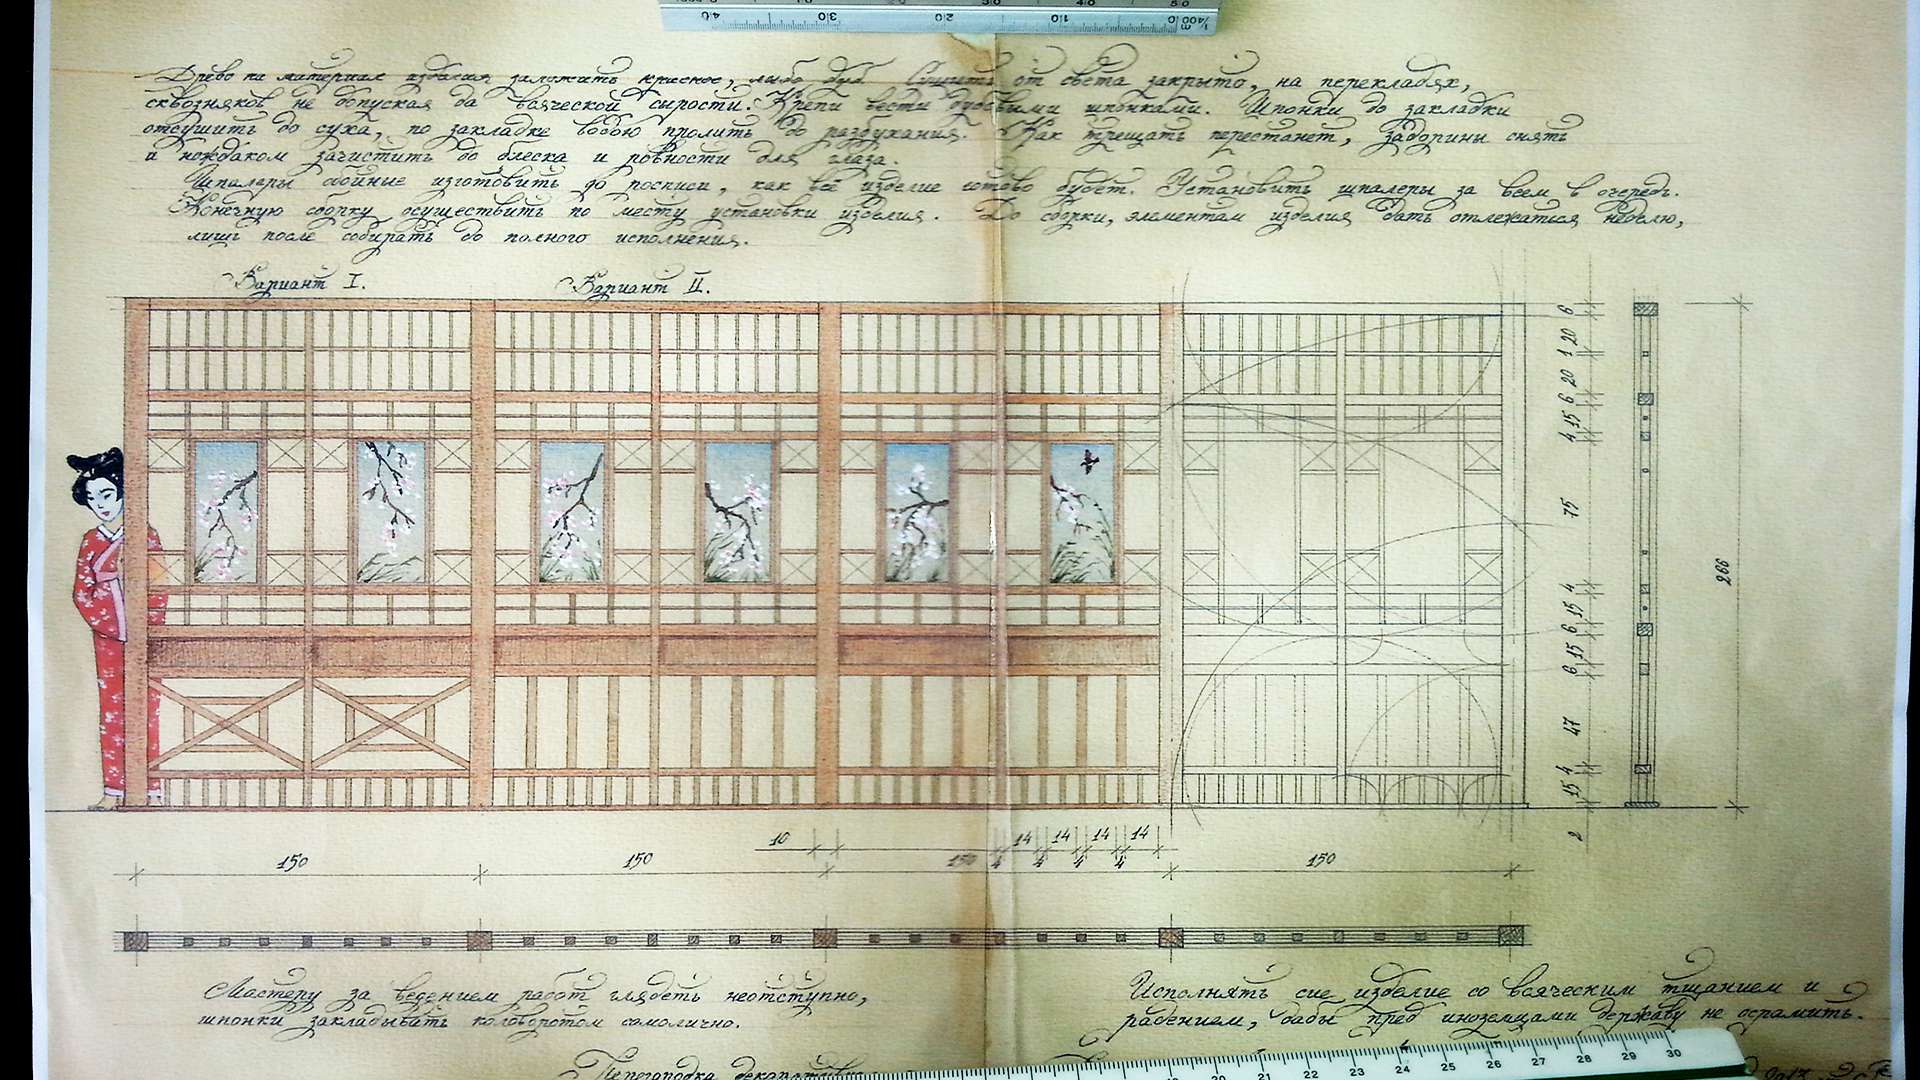 Древо на материал изделия заложить красное, либо дуб. Сушить от света закрыто, на перекладях,
сквозняков не допуская да всяческой сырости. Крепи вести дубовыми шпонками. Шпонки до закладки
отсушить до суха, по закладке водою пролить до разбухания. Как трещать перестанет, задорины снять
и нождаком зачистить до блеска и ровности для глаза.
Шпалеры обойные изготовить до росписи, как всё изделие готово будет. Установить шпалеры за всем в очередь.
Конечную сборку осуществить по месту установки изделия. До сборки, элементам изделия дать отлежатися неделю,
лишь после собирать до полного исполнения.
Вариант I. Вариант II.
6
20
1
20
6
15
4
75
4
15
6
15
6
47
4
15
2
266
10 14 14 14 14
4 4 4 4
150 150 150 150
Мастеру за ведением работ глядеть неотступно,
шпонки закладывать коловоротом самолично.
Исполнять сие изделие со всяческим тщанием и
радением, дабы пред иноземцами державу не осрамить.
Перегородка декоративная
20 21 22 23 24 25 26 27 28 29 30